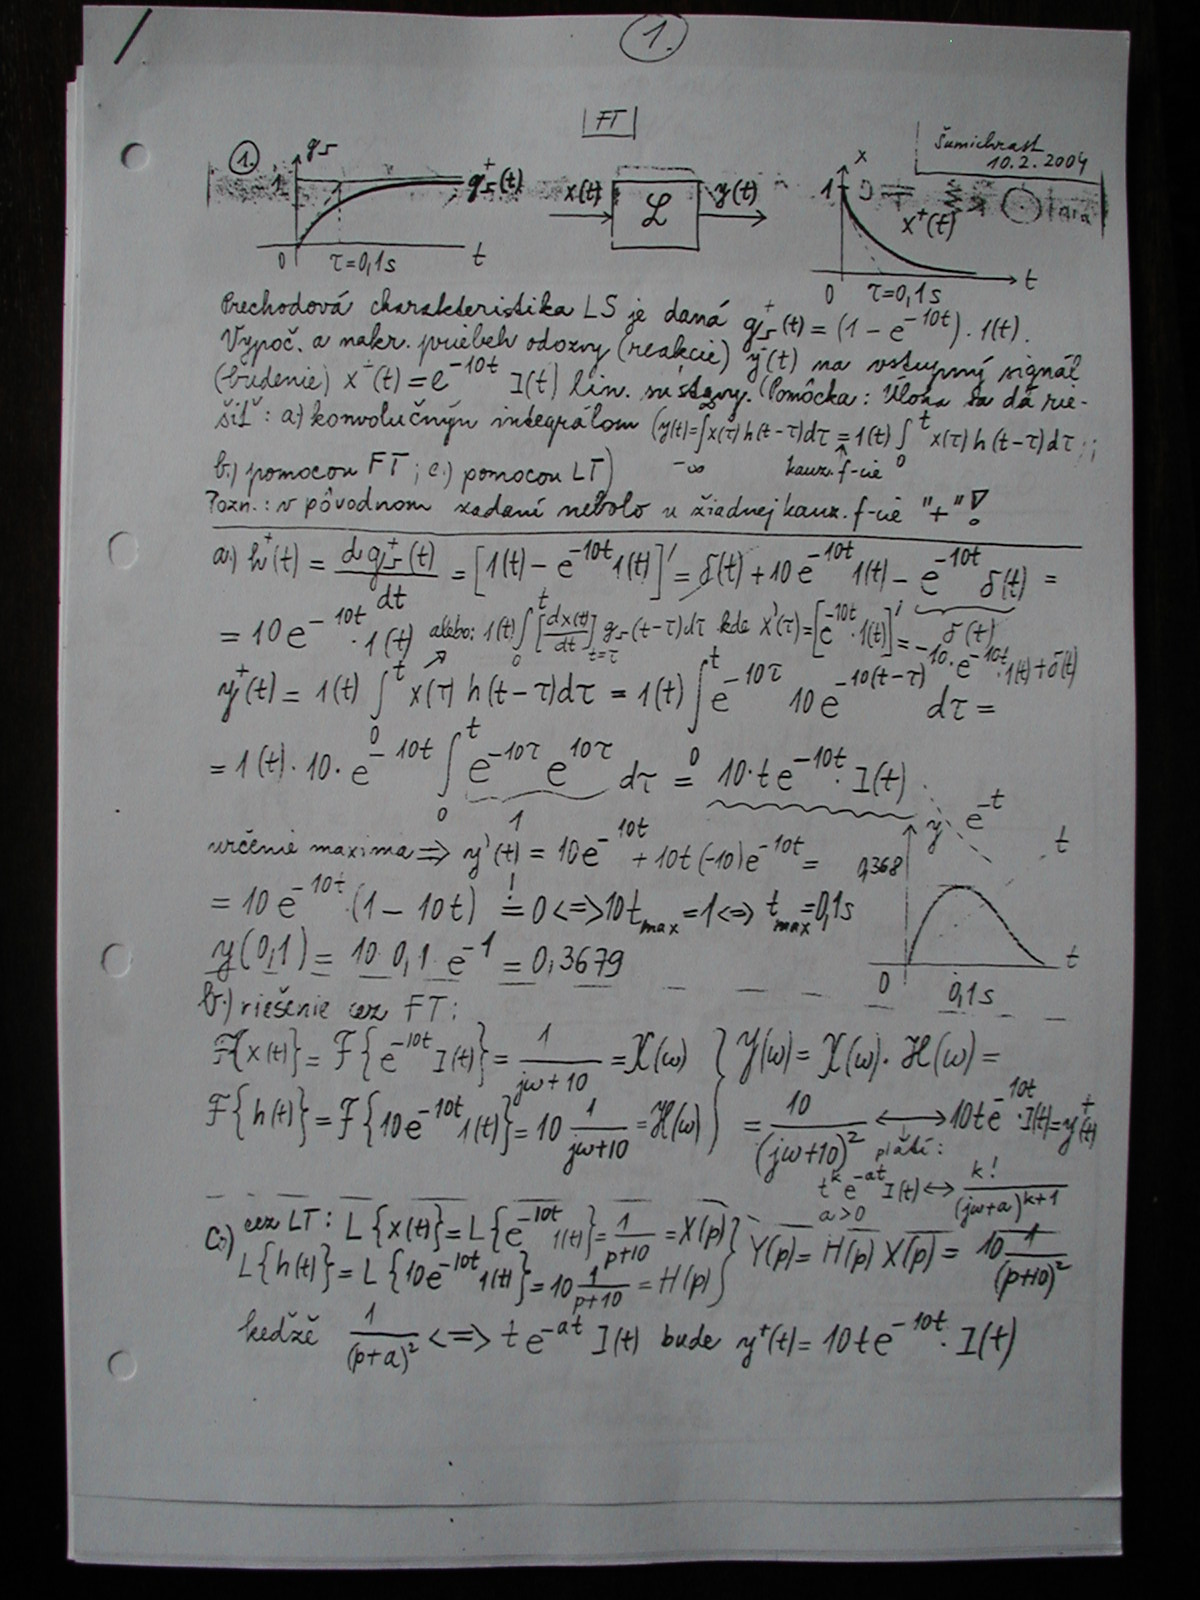 1.
FT
Šumichrast
10.2.2004
1. g₅ 1 g₅⁺(t) 0 τ=0,1s t
x(t) ℒ y(t)
x 1 x⁺(t) 0 τ=0,1s t
Prechodová charakteristika LS je daná g₅⁺(t) = (1 - e^{-10t}) . 1(t).
Vypoč. a nakr. priebeh odozvy (reakcie) y(t) na vstupný signál
(budenie) x⁺(t) = e^{-10t} 1(t) lin. sústavy. (Pomôcka: Úloha sa dá rie-
šiť: a) konvolučným integrálom (y(t) = ∫_{-∞} x(τ) h(t-τ)dτ = 1(t) ∫_0^t x(τ) h(t-τ)dτ ;
kauz. f-cie
b.) pomocou FT ; c.) pomocou LT)
Pozn.: v pôvodnom zadaní nebolo u žiadnej kauz. f-cie "+" !
a.) h⁺(t) = dg₅⁺(t)/dt = [1(t) - e^{-10t} 1(t)]' = δ(t) + 10 e^{-10t} 1(t) - e^{-10t} δ(t) =
δ(t)
= 10 e^{-10t} · 1(t) alebo: 1(t) ∫_0^t [dx(t)/dt]_{t=τ} g₅(t-τ)dτ kde x'(τ) = [e^{-10t} · 1(t)]' = -10 · e^{-10t} · 1(t) + δ(t)
y⁺(t) = 1(t) ∫_0^t x(τ) h(t-τ)dτ = 1(t) ∫_0^t e^{-10τ} 10 e^{-10(t-τ)} dτ =
= 1(t) · 10 · e^{-10t} ∫_0^t e^{-10τ} e^{10τ} dτ = 10 · t e^{-10t} · 1(t)
1
y e^{-t} t
určenie maxima => y'(t) = 10 e^{-10t} + 10t (-10) e^{-10t} =
0,368
= 10 e^{-10t} · (1 - 10t) =! 0 <=> 10 t_{max} = 1 <=> t_{max} = 0,1s
y(0,1) = 10 · 0,1 · e^{-1} = 0,3679
0 0,1s t
b.) riešenie cez FT:
F{x(t)} = F{e^{-10t} 1(t)} = 1/(jω+10) = X(ω) } Y(ω) = X(ω) · H(ω) =
F{h(t)} = F{10 e^{-10t} 1(t)} = 10 1/(jω+10) = H(ω) } = 10/(jω+10)² <-> 10 t e^{-10t} · 1(t) = y⁺(t)
platí:
t^k e^{-at} 1(t) <-> k!/(jω+a)^{k+1}
a>0
c.) cez LT: L{x(t)} = L{e^{-10t} 1(t)} = 1/(p+10) = X(p) } Y(p) = H(p) X(p) = 10 1/(p+10)²
L{h(t)} = L{10 e^{-10t} 1(t)} = 10 1/(p+10) = H(p)
keďže 1/(p+a)² <=> t e^{-at} 1(t) bude y⁺(t) = 10 t e^{-10t} · 1(t)